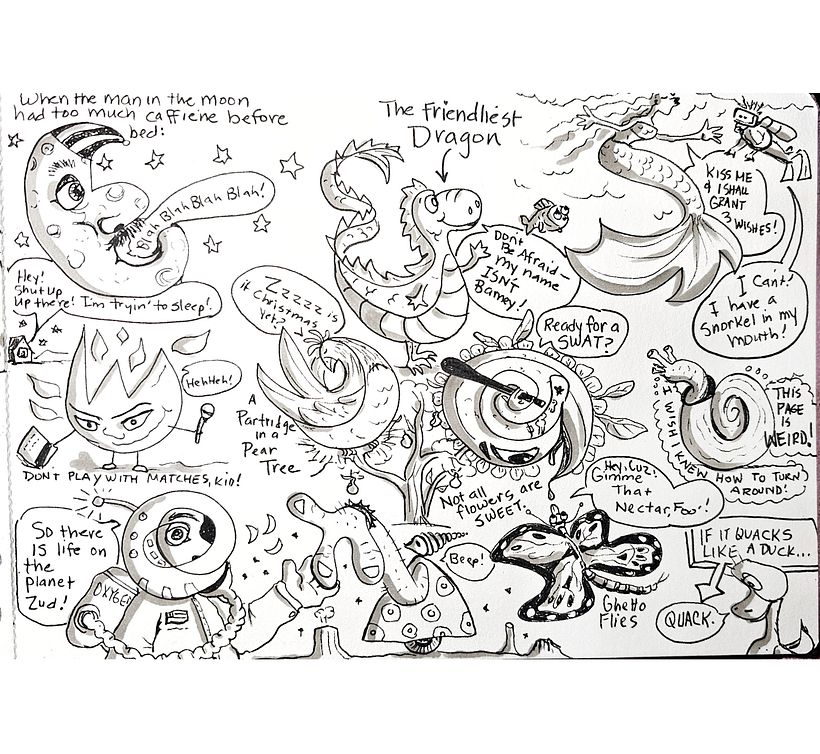 When the man in the moon
had too much caffiene before
bed:
Blah Blah Blah Blah!
Hey!
Shut up
up there! I'm tryin' to sleep!
The Friendliest
Dragon
Don't
Be Afraid-
my name
ISN't
Barney!
KISS ME
& I SHALL
GRANT
3 WISHES!
I Can't!
I have a
Snorkel in my
mouth!
ZZzzz is
it Christmas
Yet?
A
Partridge
in a
Pear
Tree
Ready for a
SWAT?
Not all
flowers are
SWEET.
HehHeh!
DON'T PLAY WITH MATCHES, KID!
I WISH I KNEW HOW TO TURN
AROUND!
THIS
PAGE
IS
WEIRD!
Hey, Cuz!
Gimme
That
Nectar, Foo'!
Ghetto
Flies
So there
IS life on
the
planet
Zud!
OXYGEN
Beep!
IF IT QUACKS
LIKE A DUCK...
QUACK.